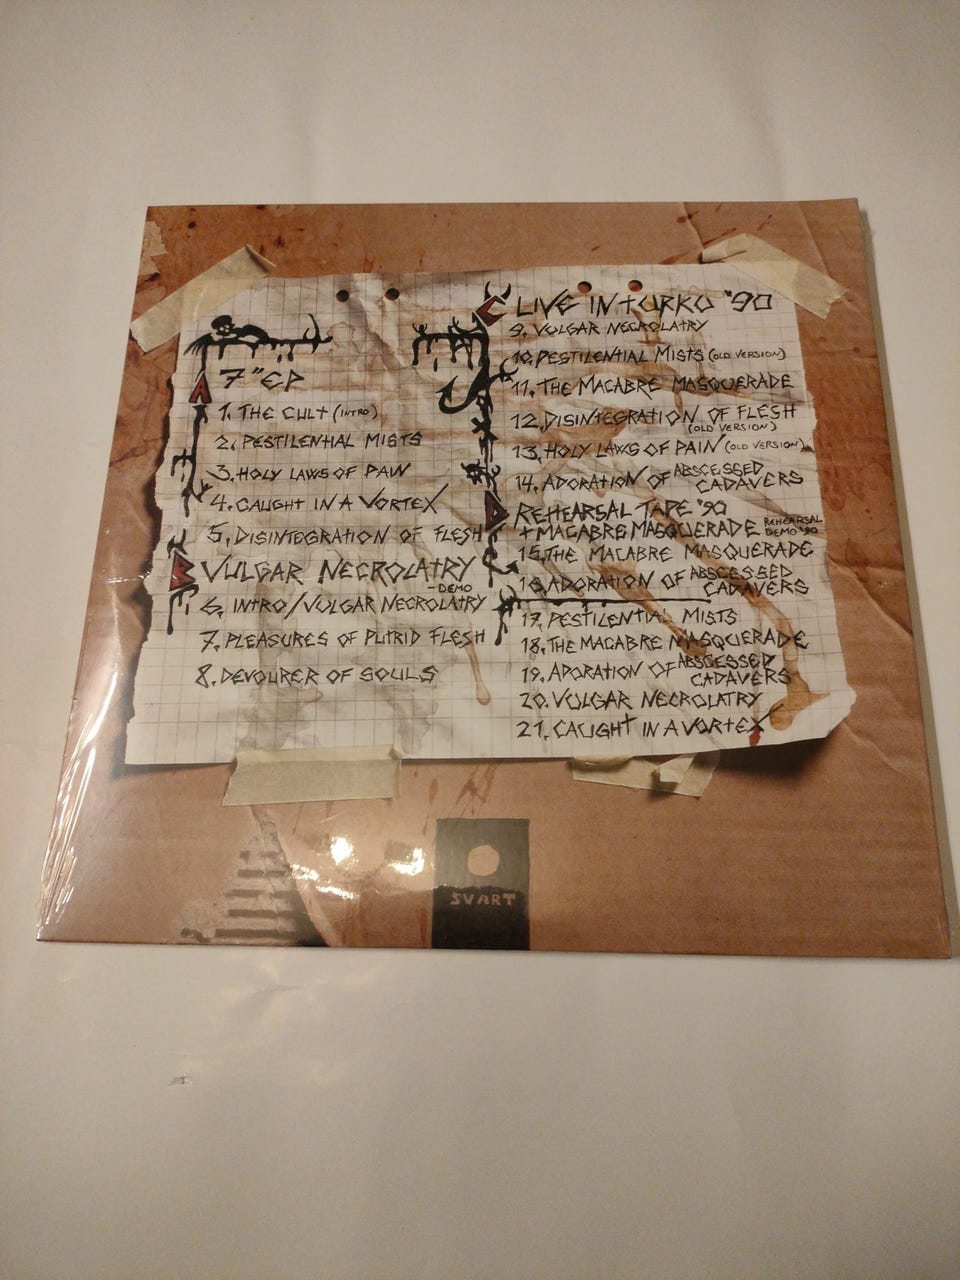 A
7" EP
1. THE CULT (INTRO)
2. PESTILENTIAL MISTS
3. HOLY LAWS OF PAIN
4. CAUGHT IN A VORTEX
5. DISINTEGRATION OF FLESH
B
VULGAR NECROLATRY
-DEMO
6. INTRO/VULGAR NECROLATRY
7. PLEASURES OF PUTRID FLESH
8. DEVOURER OF SOULS
C
LIVE IN TURKU '90
9. VULGAR NECROLATRY
10. PESTILENTIAL MISTS (OLD VERSION)
11. THE MACABRE MASQUERADE
12. DISINTEGRATION OF FLESH
(OLD VERSION)
13. HOLY LAWS OF PAIN (OLD VERSION)
14. ADORATION OF ABSCESSED
CADAVERS
D
REHEARSAL TAPE '90
+ MACABRE MASQUERADE REHEARSAL
DEMO '90
15. THE MACABRE MASQUERADE
16. ADORATION OF ABSCESSED
CADAVERS
17. PESTILENTIAL MISTS
18. THE MACABRE MASQUERADE
19. ADORATION OF ABSCESSED
CADAVERS
20. VULGAR NECROLATRY
21. CAUGHT IN A VORTEX
SVART